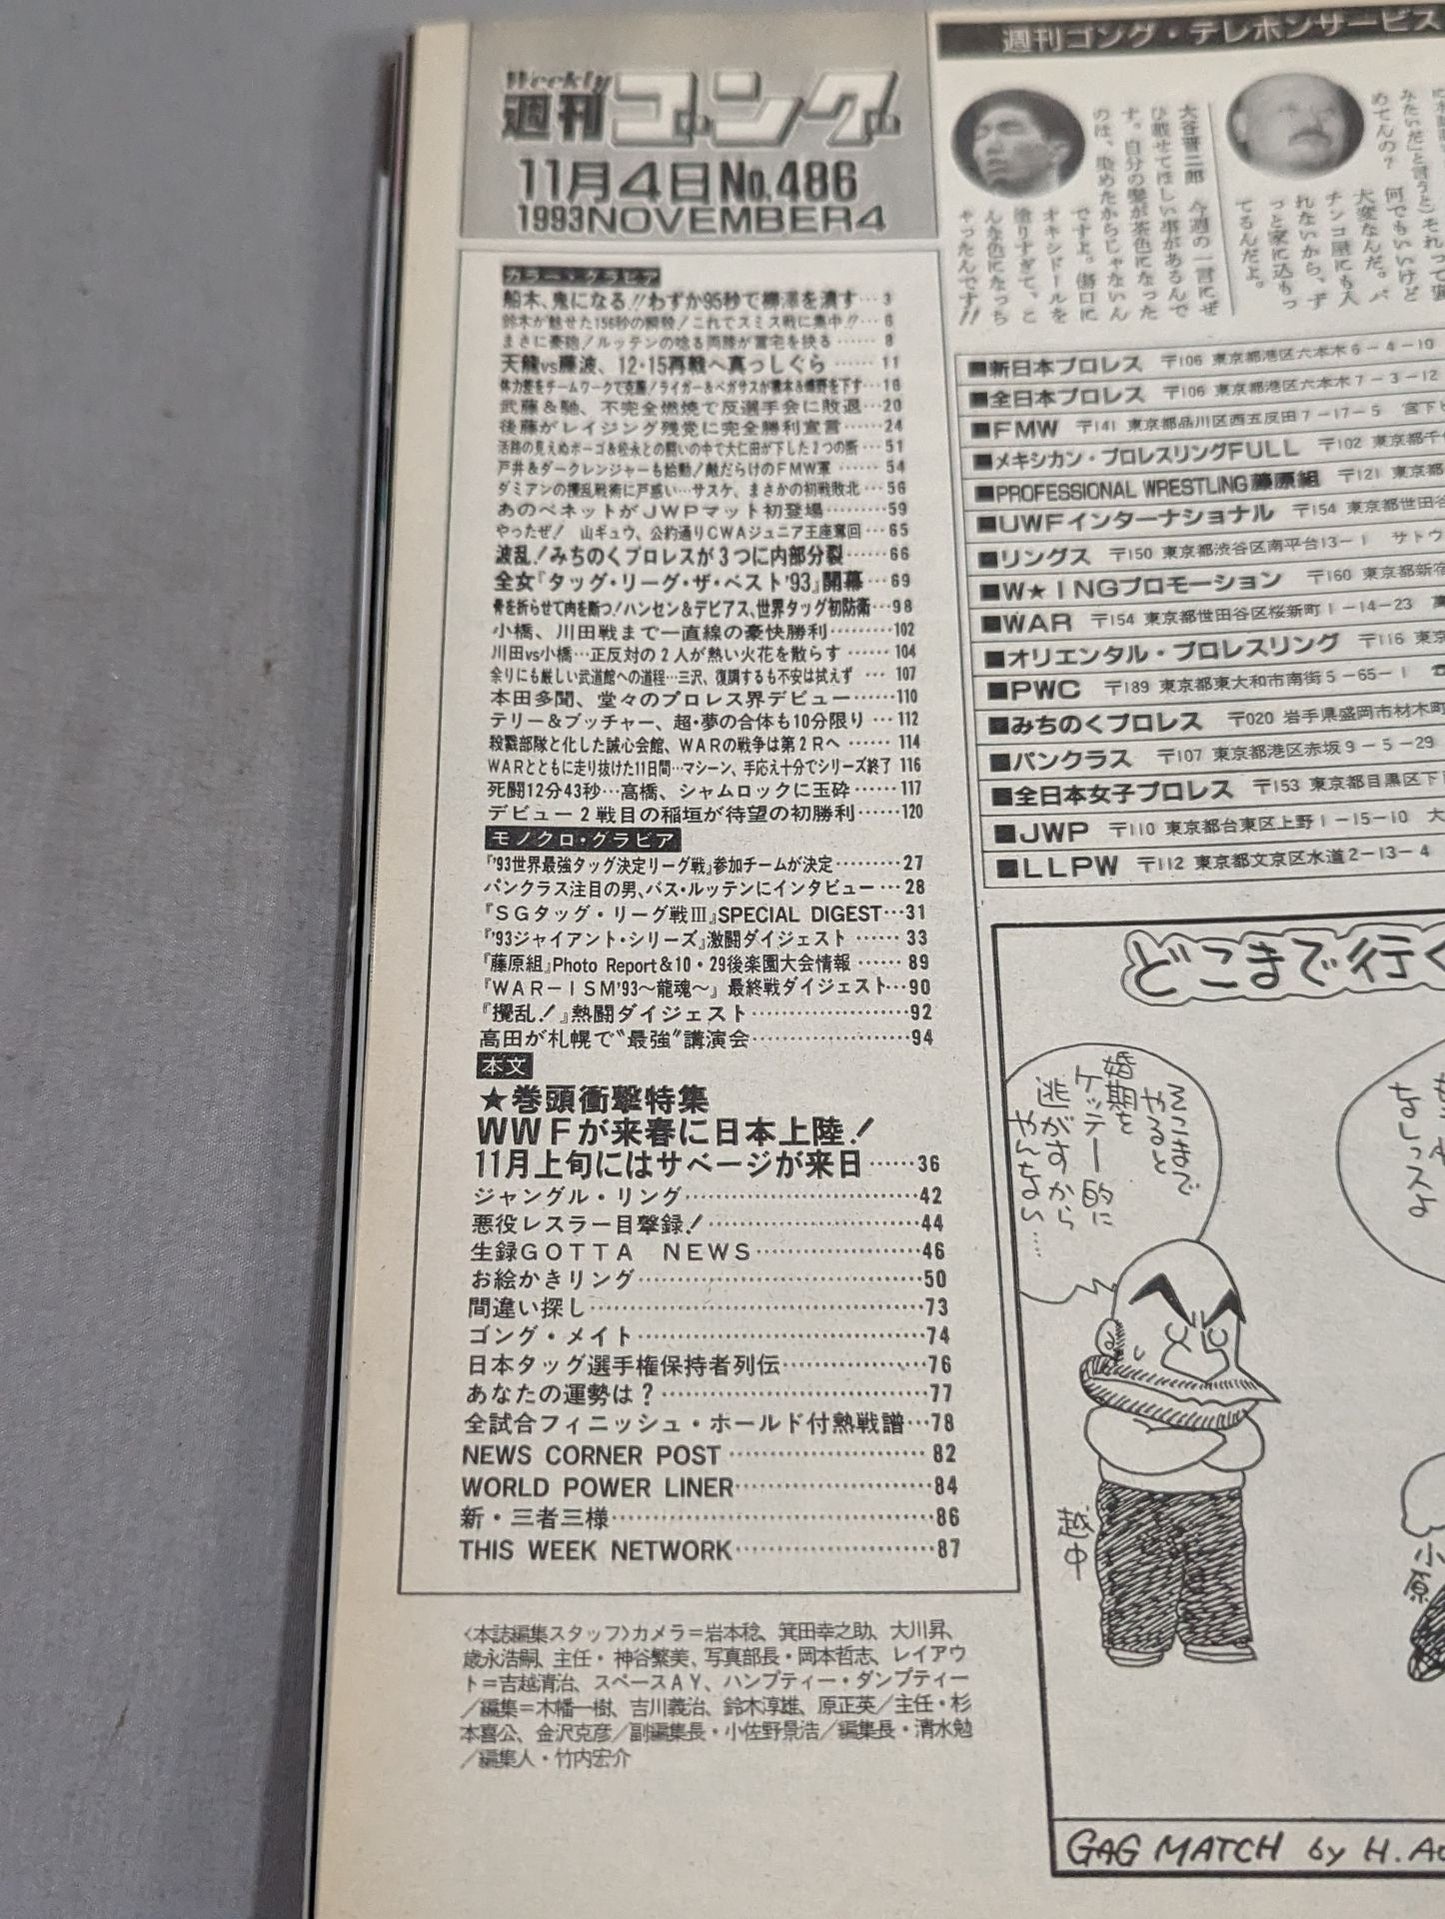 Weekly
週刊ゴング
11月4日No.486
1993NOVEMBER4
カラー・グラビア
船木、鬼になる!!わずか95秒で柳澤を潰す…3
鈴木が魅せた156秒の瞬殺!これでスミス戦に集中!!…6
まさに豪砲!ルッテンの唸る両膝が冨宅を抉る……8
天龍vs藤波、12・15再戦へ真っしぐら……11
体力差をチームワークで克服!ライガー&ペガサスが橋本&蝶野を下す…16
武藤&馳、不完全燃焼で反選手会に敗退…20
後藤がレイジング残党に完全勝利宣言……24
活路の見えぬポーゴ&松永との闘いの中で大仁田が下した2つの断…51
戸井&ダークレンジャーも始動!敵だらけのFMW軍……54
ダミアンの攪乱戦術に戸惑い…サスケ、まさかの初戦敗北…56
あのベネットがJWPマット初登場………59
やったぜ! 山ギュウ、公約通りCWAジュニア王座奪回…65
波乱!みちのくプロレスが3つに内部分裂……66
全女『タッグ・リーグ・ザ・ベスト'93』開幕…69
骨を折らせて肉を断つ!ハンセン&デビアス、世界タッグ初防衛…98
小橋、川田戦まで一直線の豪快勝利………102
川田vs小橋…正反対の2人が熱い火花を散らす……104
余りにも厳しい武道館への道程…三沢、復調するも不安は拭えず…107
本田多聞、堂々のプロレス界デビュー……110
テリー&ブッチャー、超・夢の合体も10分限り…112
殺戮部隊と化した誠心会館、WARの戦争は第2Rへ……114
WARとともに走り抜けた11日間…マシーン、手応え十分でシリーズ終了 116
死闘12分43秒…高橋、シャムロックに玉砕……117
デビュー2戦目の稲垣が待望の初勝利……120
モノクロ・グラビア
『'93世界最強タッグ決定リーグ戦』参加チームが決定………27
パンクラス注目の男、バス・ルッテンにインタビュー…28
『SGタッグ・リーグ戦III』SPECIAL DIGEST…31
『'93ジャイアント・シリーズ』激闘ダイジェスト……33
『藤原組』Photo Report&10・29後楽園大会情報……89
『WAR−ISM'93〜龍魂〜』最終戦ダイジェスト…90
『攪乱!』熱闘ダイジェスト…………………92
高田が札幌で“最強”講演会…………………94
本文
★巻頭衝撃特集
WWFが来春に日本上陸!
11月上旬にはサベージが来日……36
ジャングル・リング…………………………42
悪役レスラー目撃録!………………………44
生録GOTTA NEWS…………………46
お絵かきリング………………………………50
間違い探し……………………………………73
ゴング・メイト………………………………74
日本タッグ選手権保持者列伝………………76
あなたの運勢は?……………………………77
全試合フィニッシュ・ホールド付熱戦譜…78
NEWS CORNER POST……………………82
WORLD POWER LINER……………………84
新・三者三様…………………………………86
THIS WEEK NETWORK……………………87
〈本誌編集スタッフ〉カメラ=岩本稔、箕田幸之助、大川昇、
歳永浩嗣、主任・神谷繁美、写真部長・岡本哲志、レイアウ
ト=吉越清治、スペースAY、ハンプティー・ダンプティー
/編集=木幡一樹、吉川義治、鈴木淳雄、原正英/主任・杉
本喜公、金沢克彦/副編集長・小佐野景浩/編集長・清水勉
/編集人・竹内宏介
週刊ゴング・テレホンサービス
大谷晋二郎 今週の一言にぜ
ひ載せてほしい事があるんで
す。自分の髪が茶色になった
のは、染めたからじゃないん
ですよ。傷口に
オキシドールを
塗りすぎて、こ
んな色になっち
ゃったんです!!
みたいだ」と言うと)それって
めてんの? 何でもいいけど
大変なんだ。パ
チンコ屋にも入
れないから、ず
っと家に込もっ
てるんだよ。
■新日本プロレス 〒106 東京都港区六本木6−4−10
■全日本プロレス 〒106 東京都港区六本木7−3−12
■FMW 〒141 東京都品川区西五反田7−17−5 宮下
■メキシカン・プロレスリングFULL 〒102 東京都千
■PROFESSIONAL WRESTLING藤原組 〒121 東京都
■UWFインターナショナル 〒154 東京都世田谷
■リングス 〒150 東京都渋谷区南平台13−1 サトウ
■W★INGプロモーション 〒160 東京都新宿
■WAR 〒154 東京都世田谷区桜新町1−14−23
■オリエンタル・プロレスリング 〒116 東京
■PWC 〒189 東京都東大和市南街5−65−1 ☎
■みちのくプロレス 〒020 岩手県盛岡市材木町
■パンクラス 〒107 東京都港区赤坂9−5−29
■全日本女子プロレス 〒153 東京都目黒区下
■JWP 〒110 東京都台東区上野1−15−10 大
■LLPW 〒112 東京都文京区水道2−13−4
どこまで行く
そこまで
やると
ケッテー的に
婚期を
逃がすから
やんない…
なしっスよ
越中
小原
GAG MATCH by H.A